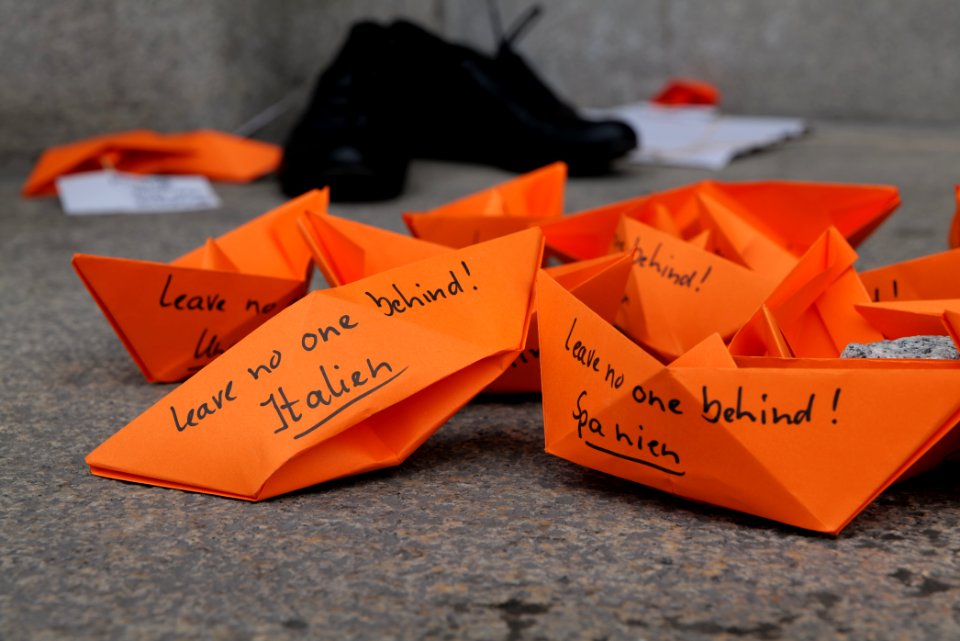 Leave no
leave no one behind!
Italien
behind!
Leave no one behind!
Spanien